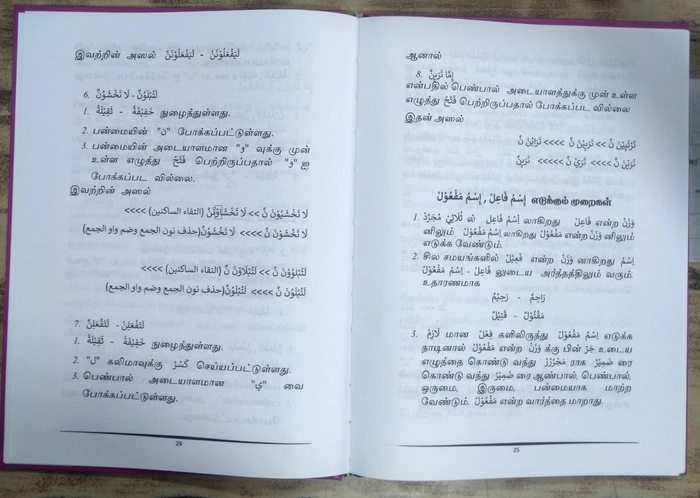 இவற்றின் அஸல் لَيَفْعَلُوْنَنَّ - لَيَفْعَلُوْنَنْ
6. لَتُبْلَوُنَّ - لَا تَخْشَوُنَّ
1. ثَقِيْلَةٌ - خَفِيْفَةٌ நுழைந்துள்ளது.
2. பன்மையின் "نَ" போக்கப்பட்டுள்ளது.
3. பன்மையின் அடையாளமான "وْ" வுக்கு முன்
உள்ள எழுத்து فَتْحٌ பெற்றிருப்பதால் "وْ" ஐ
போக்கப்பட வில்லை.
இவற்றின் அஸல்
لَا تَخْشَيُوْنَ نَّ >> (التقاء الساكنين) >>>>
لَا تَخْشَوْنَ نَّ >>>> لَا تَخْشَوُنَّ (حذف نون الجمع وضم واو الجمع)
لَتُبْلَوُوْنَ نَّ >> لَتُبْلَاوْنَ نَّ (التقاء الساكنين) >>>>
لَتُبْلَوْنَ نَّ >>>> لَتُبْلَوُنَّ (حذف نون الجمع وضم واو الجمع)
7. لَتَفْعَلِنَّ - لَتَفْعَلِنْ
1. ثَقِيْلَةٌ - خَفِيْفَةٌ நுழைந்துள்ளது.
2. "ل" கலிமாவுக்கு كَسْرٌ செய்யப்பட்டுள்ளது.
3. பெண்பால் அடையாளமான "يْ" வை
போக்கப்பட்டுள்ளது.
24
ஆனால்
8. إِمَّا تَرَيِنَّ
என்பதில் பெண்பால் அடையாளத்துக்கு முன் உள்ள
எழுத்து فَتْحٌ பெற்றிருப்பதால் போக்கப்பட வில்லை
இதன் அஸல்
تَرْئَيِيْنَ نَّ >> تَرَيِيْنَ نَّ >>>> تَرَايْنَ نَّ
تَرَيْنَ نَّ >>>> تَرَيْ نَّ >>>>> تَرَيِنَّ
اِسْمُ فَاعِلْ , اِسْمُ مَفْعُوْلْ எடுக்கும் முறைகள்
1. ثُلَاثِيْ مُجَرَّدْ ல் اِسْمُ فَاعِلْ லாகிறது فَاعِلٌ என்ற وَزْنْ
னிலும் اِسْمُ مَفْعُوْلْ லாகிறது مَفْعُوْلٌ என்ற وَزْنْ னிலும்
எடுக்க வேண்டும்.
2. சில சமயங்களில் فَعِيْلٌ என்ற وَزْنْ னாகிறது اِسْمُ
فَاعِلْ - اِسْمُ مَفْعُوْلْ லுடைய அர்த்தத்திலும் வரும்.
உதாரணமாக
رَاحِمٌ - رَحِيْمٌ
مَقْتُوْلٌ - قَتِيْلٌ
3. لَازِمْ மான فِعْلْ களிலிருந்து اِسْمُ مَفْعُوْلْ எடுக்க
நாடினால் مَفْعُوْلٌ என்ற وَزْنْ க்கு பின் جَرْ உடைய
எழுத்தை கொண்டு வந்து مَجْرُوْرْ ராக ضَمِيْرْ ரை
கொண்டு வந்து ضَمِيْرْ ரை ஆண்பால், பெண்பால்,
ஒருமை, இருமை, பன்மையாக மாற்ற
வேண்டும். مَفْعُوْلٌ என்ற வார்த்தை மாறாது.
25